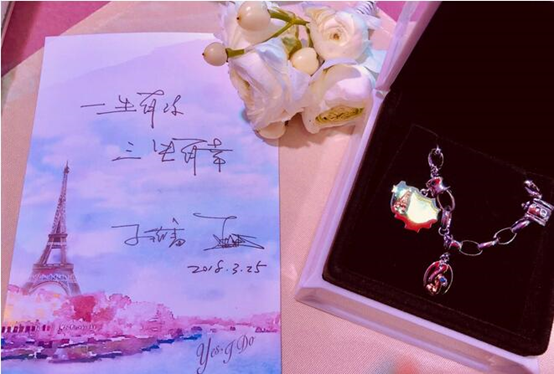 一生有你
三生有幸
2018.3.25
Yes I Do